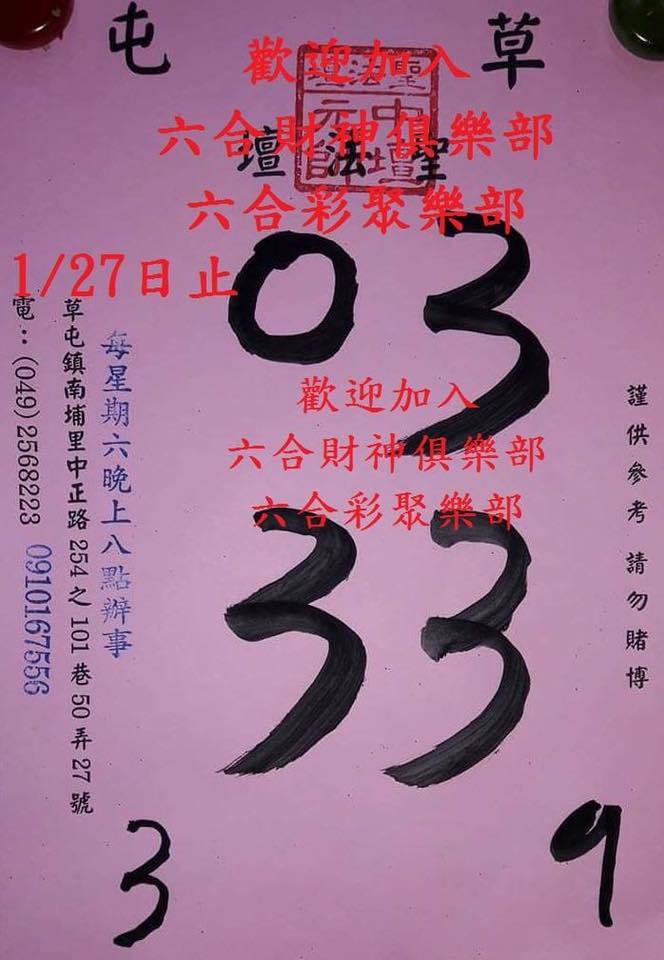 草屯
歡迎加入
六合財神俱樂部
六合彩聚樂部
1/27日止
聖法壇
中壇
元帥
聖法壇
03
歡迎加入
六合財神俱樂部
六合彩聚樂部
33
3
9
謹供參考 請勿賭博
每星期六晚上八點辦事
草屯鎮南埔里中正路254之101巷50弄27號
電：(049)2568223 0910167556